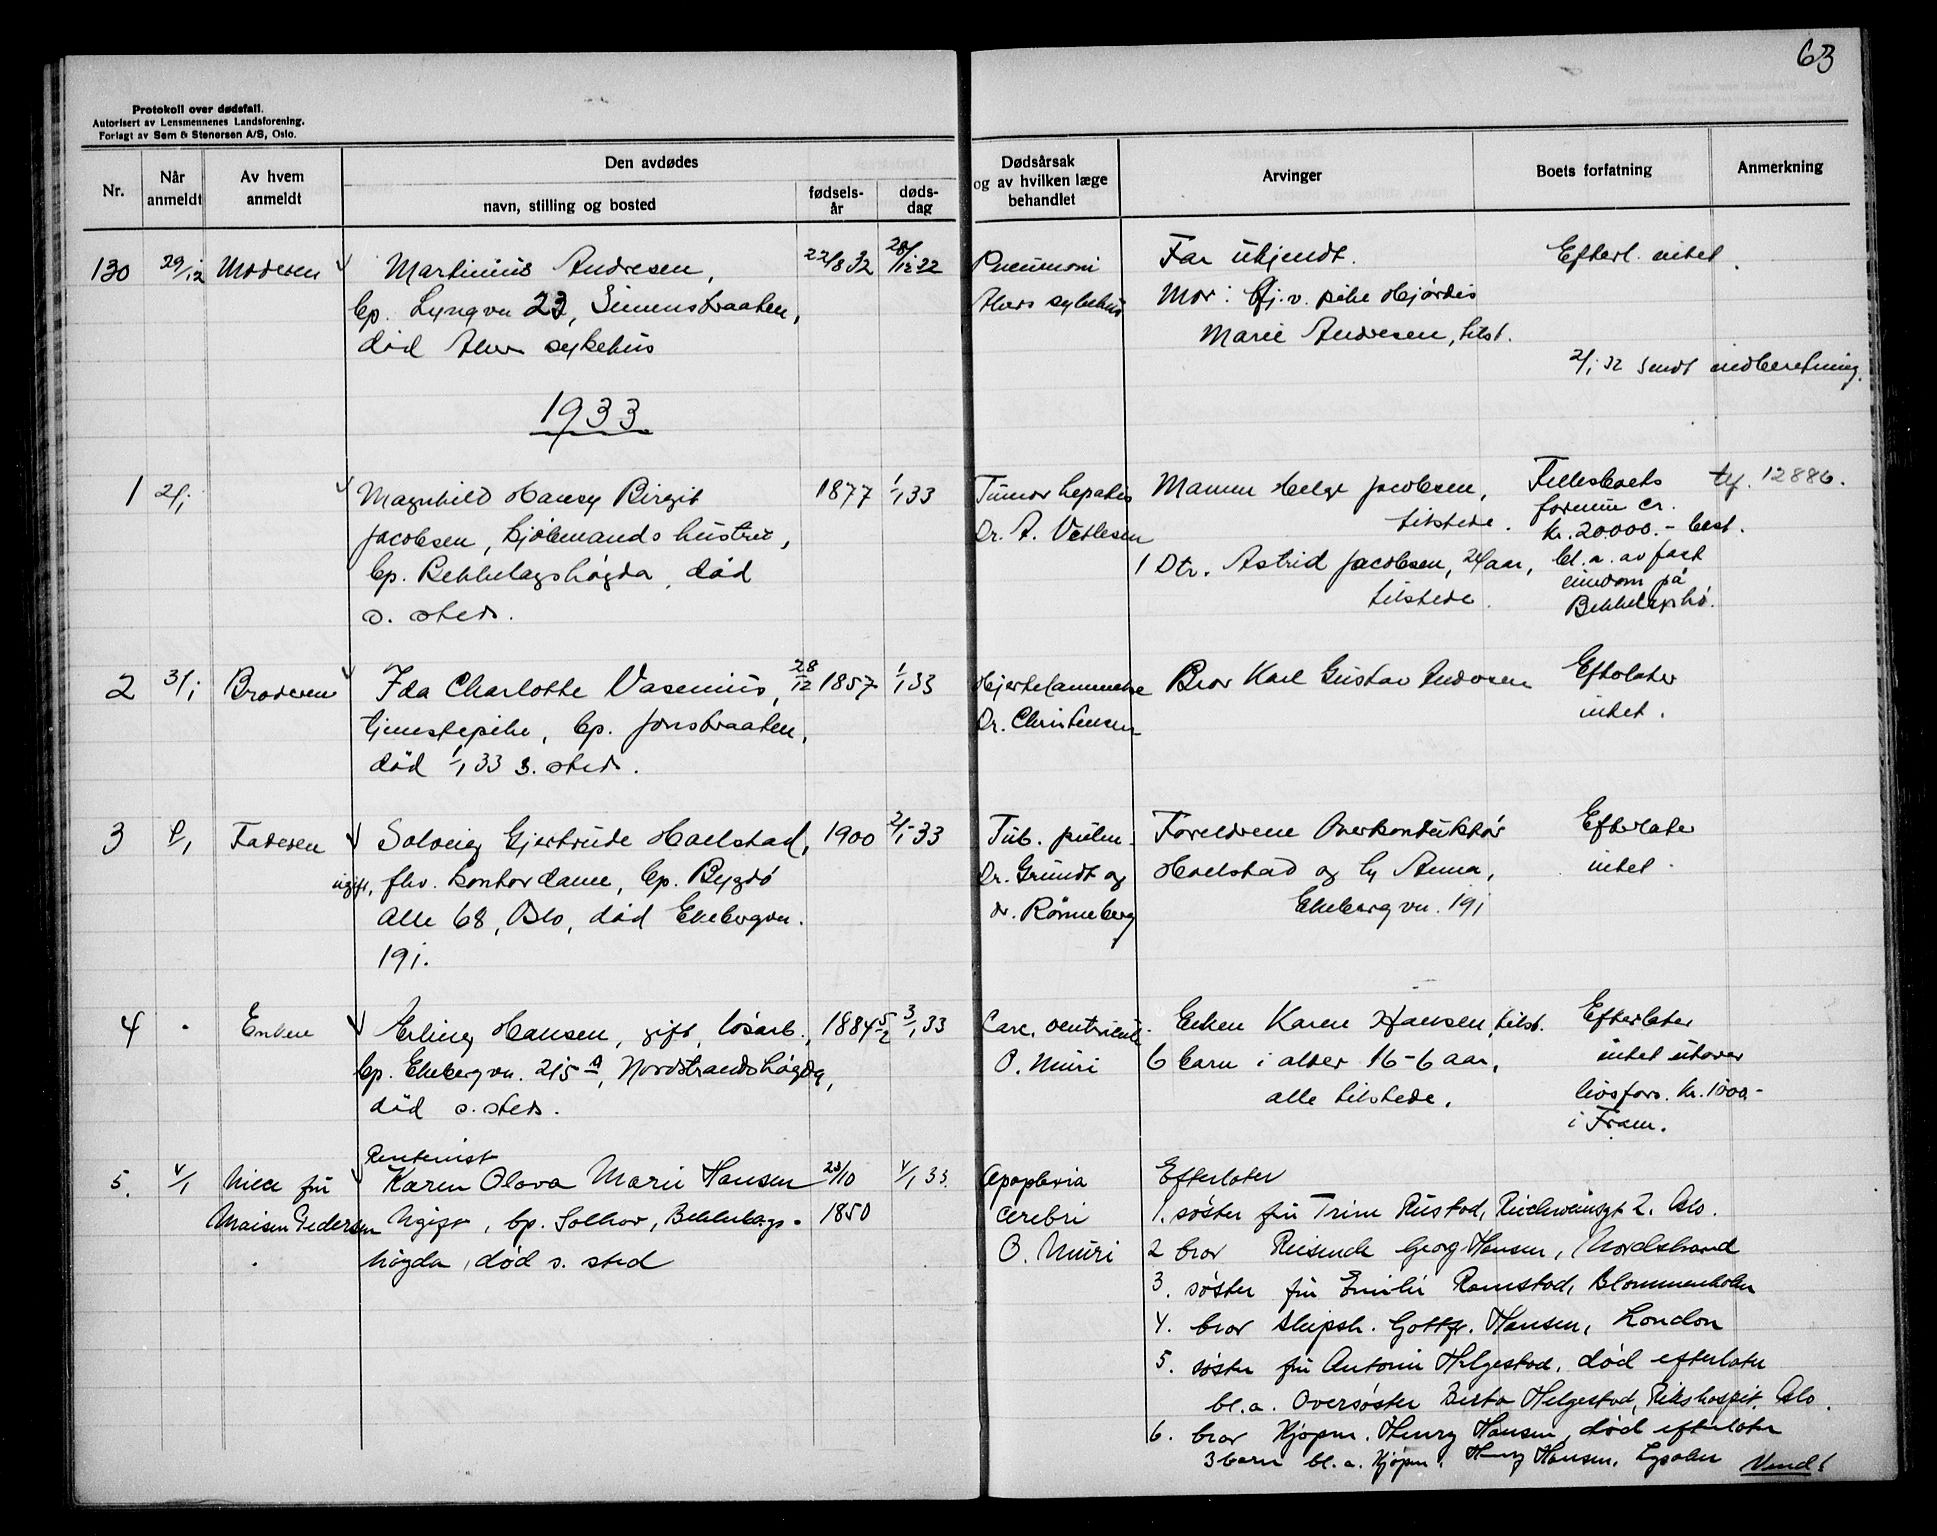 63
Protokoll over dødsfall.
Autorisert av Lensmennenes Landsforening.
Forlagt av Sem & Stenersen A/S, Oslo.
Nr.
Når anmeldt
Av hvem anmeldt
Den avdødes
navn, stilling og bosted
fødsels-år
døds-dag
Dødsårsak og av hvilken læge behandlet
Arvinger
Boets forfatning
Anmerkning
130 29/12 Moderen Martinius Andresen, 22/8 32 28/12 32 Pneumoni Far ukjendt. Efterl. intet.
bp. Lyngvn 23, Simenstraaten, Akers sykehus Mor: Gj. v. pike Hjördis
död Aker sykehus Marie Andresen, tilst.
2/1 32 Sendt indberetning.
1933
1 2/1 Magnhild Hansy Birgit 1877 1/1 33 Tumor hepatis Mannen Helge Jacobsen, Fellesboets tlf. 12886.
Jacobsen, kjöbmands hustru, Dr. A. Vetlesen tilstede. formue ca.
kr. 20.000.- best.
bp. Bekkelagshögda, död 1 Dtr. Astrid Jacobsen, 24 aar, bl. a. av fast
s. sted. tilstede. eiendom på
Bekkelagshö.
2 3/1 Broderen Ida Charlotte Vasenius, 28/12 1857 1/1 33 Hjertelammelse Bror Karl Gustav Andresen Efterlater
tjenestepike, bp. Jonsbraaten, Dr. Christensen intet.
död 1/1 33 s. sted.
3 Faderen Solveig Gjertrude Haelstad, 1900 2/1-33 Tub. pulm. Foreldrene Overkonduktör Efterlater
ugift, fhv. kontordame, bp. Bygdö Dr. Grundt og Haelstad og h. Anna, intet.
Alle 68, Oslo, död Ekebergvn. dr. Rönneberg Ekebergvn. 191
191.
4 Enken Erling Hansen, gift, lösarb., 1884 5/2 3/1 33 Canc. ventriculi. Enken Karen Hansen, tilst. Efterlater
bp. Ekebergvn. 215 A, Nordstrandshögda, O. Muri 6 barn i alder 16-6 aar, intet utover
död s. sted. alle tilstede. livsfors. kr. 1000.-
i Fram.
Rentenist
5. 4/1 Niece fru Karen Olava Marie Hansen 23/10 4/1 33. Apoplexia Efterlater
Maisen Pedersen Ugift, bp. Solhov, Bekkelags- 1850 cerebri 1. søster fru Trine Rustad, Reichweinsgt 2. Oslo.
högda, död s. sted O. Muri 2 bror Reisende Georg Hansen, Nordstrand
3. søster fru Emilie Ramstad, Blommenholm
4. bror Skipsh. Gottfr. Hansen, London
5. søster fru Antonie Helgestad, død efterlater
bl. a. Oversøster Berta Helgestad, Rikshospit. Oslo.
6. bror Kjøpm. Henry Hansen, død efterlater
3 barn bl. a. Kjøpm. Henry Hansen, Lysaker
Vend!